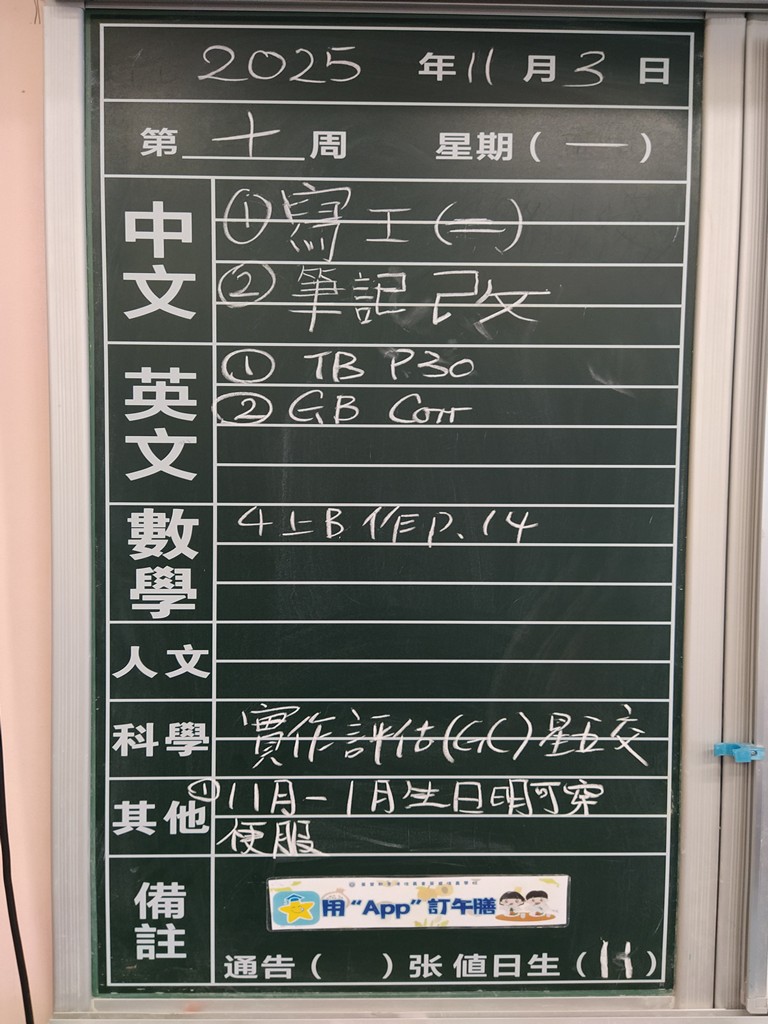 2025 年 11 月 3 日
第 十 周 星期（一）
中文
①寫工(二)
②筆記改
英文
① TB P30
② GB Corr
數學
4上B 作P.14
人文
科學
實作評估(GC)星五交
其他
①11月-1月生日明可穿
便服
備註
用“App”訂午膳
通告（ ）张 值日生（11）